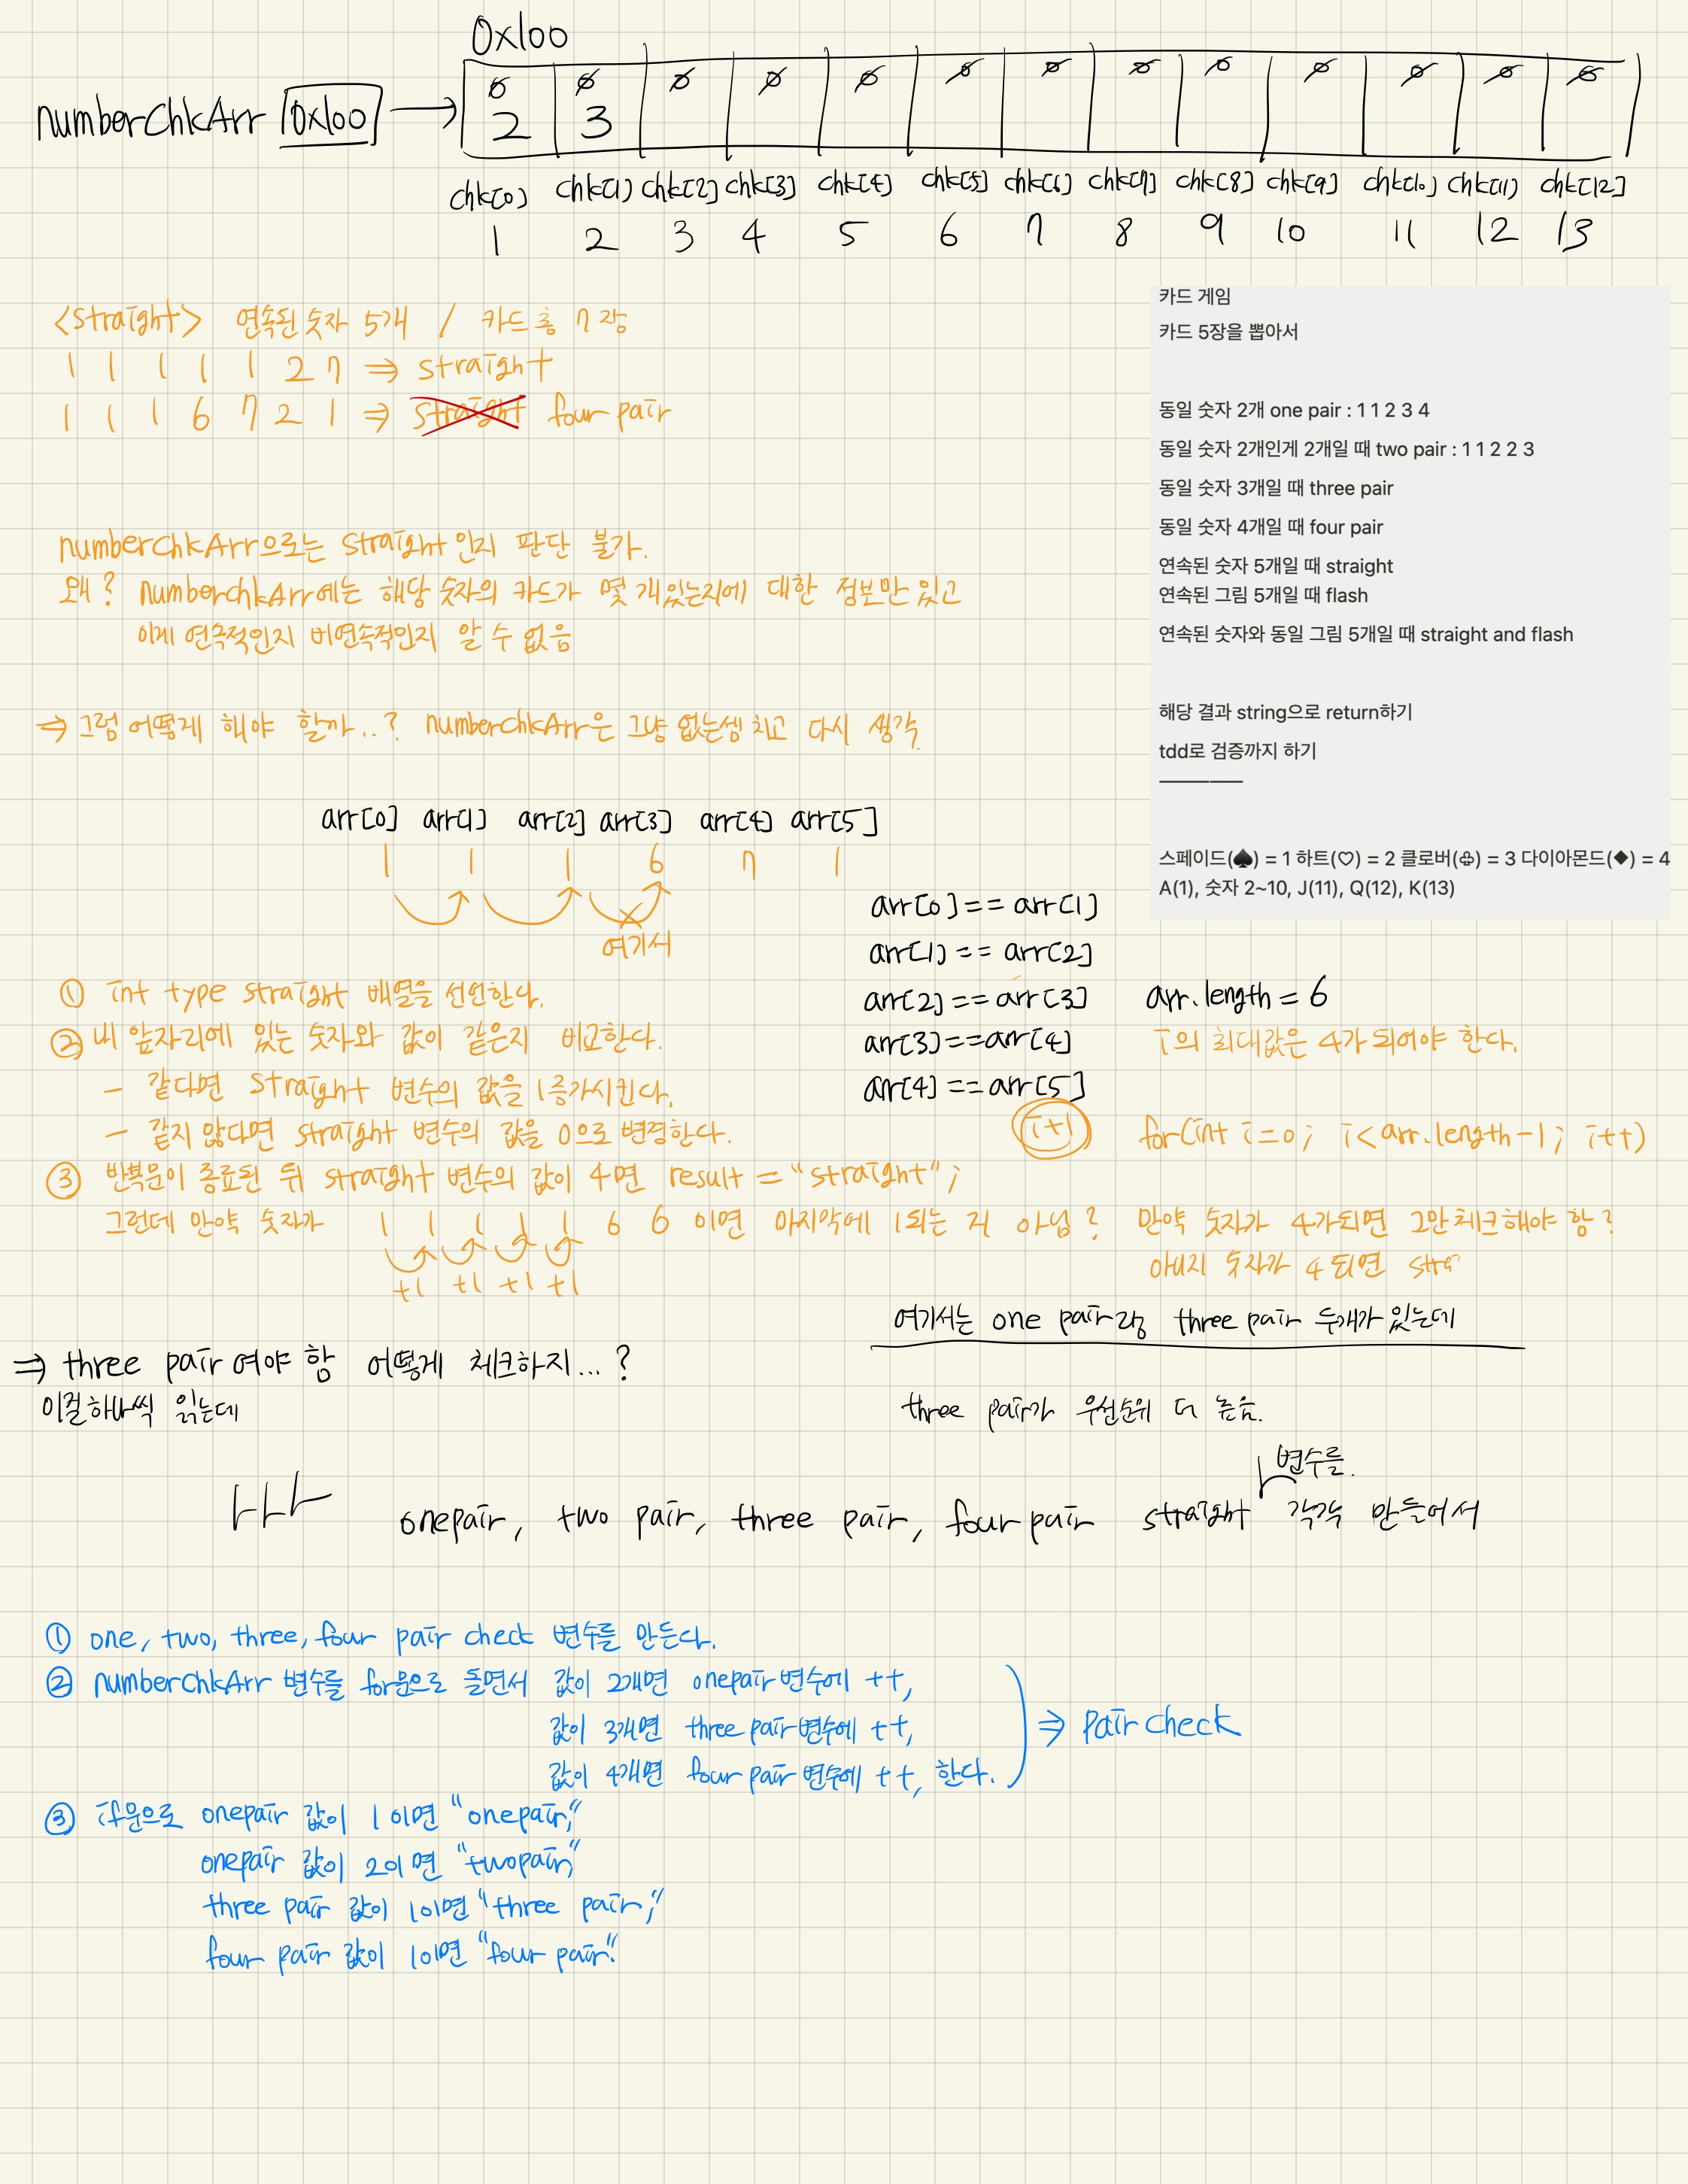 0x100
numberChkArr 0x100 →
0 0 0 0 0 0 0 0 0 0 0 0 0
2 3
chk[0] chk[1] chk[2] chk[3] chk[4] chk[5] chk[6] chk[7] chk[8] chk[9] chk[10] chk[11] chk[12]
1 2 3 4 5 6 7 8 9 10 11 12 13
<straight> 연속된 숫자 5개 / 카드 총 7장
1 1 1 1 1 2 7 ⇒ straight
1 1 1 6 7 2 1 ⇒ straight four pair
numberChkArr으로는 straight인지 판단 불가.
왜? numberchkArr에는 해당 숫자의 카드가 몇 개있는지에 대한 정보만 있고
이게 연속적인지 비연속적인지 알 수 없음
⇒ 그럼 어떻게 해야 할까..? numberchkArr은 그냥 없는셈 치고 다시 생각
카드 게임
카드 5장을 뽑아서
동일 숫자 2개 one pair : 1 1 2 3 4
동일 숫자 2개인게 2개일 때 two pair : 1 1 2 2 3
동일 숫자 3개일 때 three pair
동일 숫자 4개일 때 four pair
연속된 숫자 5개일 때 straight
연속된 그림 5개일 때 flash
연속된 숫자와 동일 그림 5개일 때 straight and flash
해당 결과 string으로 return하기
tdd로 검증까지 하기
스페이드(♠) = 1 하트(♡) = 2 클로버(♧) = 3 다이아몬드(◆) = 4
A(1), 숫자 2~10, J(11), Q(12), K(13)
arr[0] arr[1] arr[2] arr[3] arr[4] arr[5]
1 1 1 6 7 1
여기서
arr[0] == arr[1]
arr[1] == arr[2]
arr[2] == arr[3]
arr[3] == arr[4]
arr[4] == arr[5]
i+1
arr.length = 6
i의 최대값은 4가 되어야 한다.
for(int i=0; i<arr.length-1; i++)
① int type straight 배열을 선언한다.
② 내 앞자리에 있는 숫자와 값이 같은지 비교한다.
- 같다면 straight 변수의 값을 1증가시킨다.
- 같지 않다면 straight 변수의 값을 0으로 변경한다.
③ 반복문이 종료된 뒤 straight 변수의 값이 4면 result = "straight";
그런데 만약 숫자가 1 1 1 1 1 6 6 이면 마지막에 1되는 거 아님? 만약 숫자가 4가되면 그만체크해야 함?
+1 +1 +1 +1
아니지 숫자가 4 되면 stra
여기서는 one pair랑 three pair 두개가 있는데
⇒ three pair여야 함 어떻게 체크하지...?
이걸하나씩 읽는데
three pair가 우선순위 더 높음.
변수를.
onepair, two pair, three pair, four pair straight 각각 만들어서
① one, two, three, four pair check 변수를 만든다.
② numberChkArr 변수를 for문으로 돌면서 값이 2개면 onepair변수에 ++,
값이 3개면 three pair변수에 ++,
값이 4개면 four pair 변수에 ++, 한다.
⇒ pair check
③ if문으로 onepair 값이 1이면 "onepair,"
onepair 값이 2이면 "twopair,"
three pair 값이 1이면 "three pair,"
four pair 값이 1이면 "four pair."